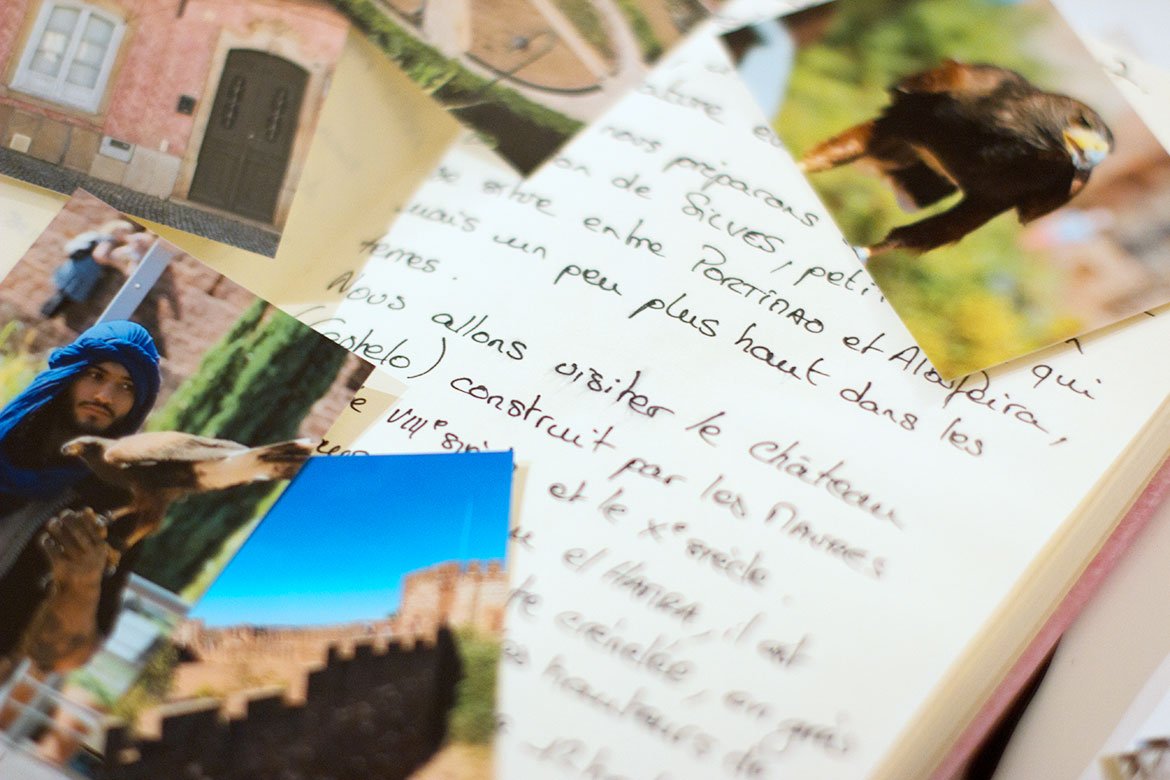 nous préparons
de SILVES, petit
se situe entre PORTIMAO et Albufeira, qui
mais un peu plus haut dans les
terres.
Nous allons visiter le château
(Castelo) construit par les MAURES
e VIIIe et le Xe siècle.
el HAMRA, il est
crénelée, en grès
hauteurs de